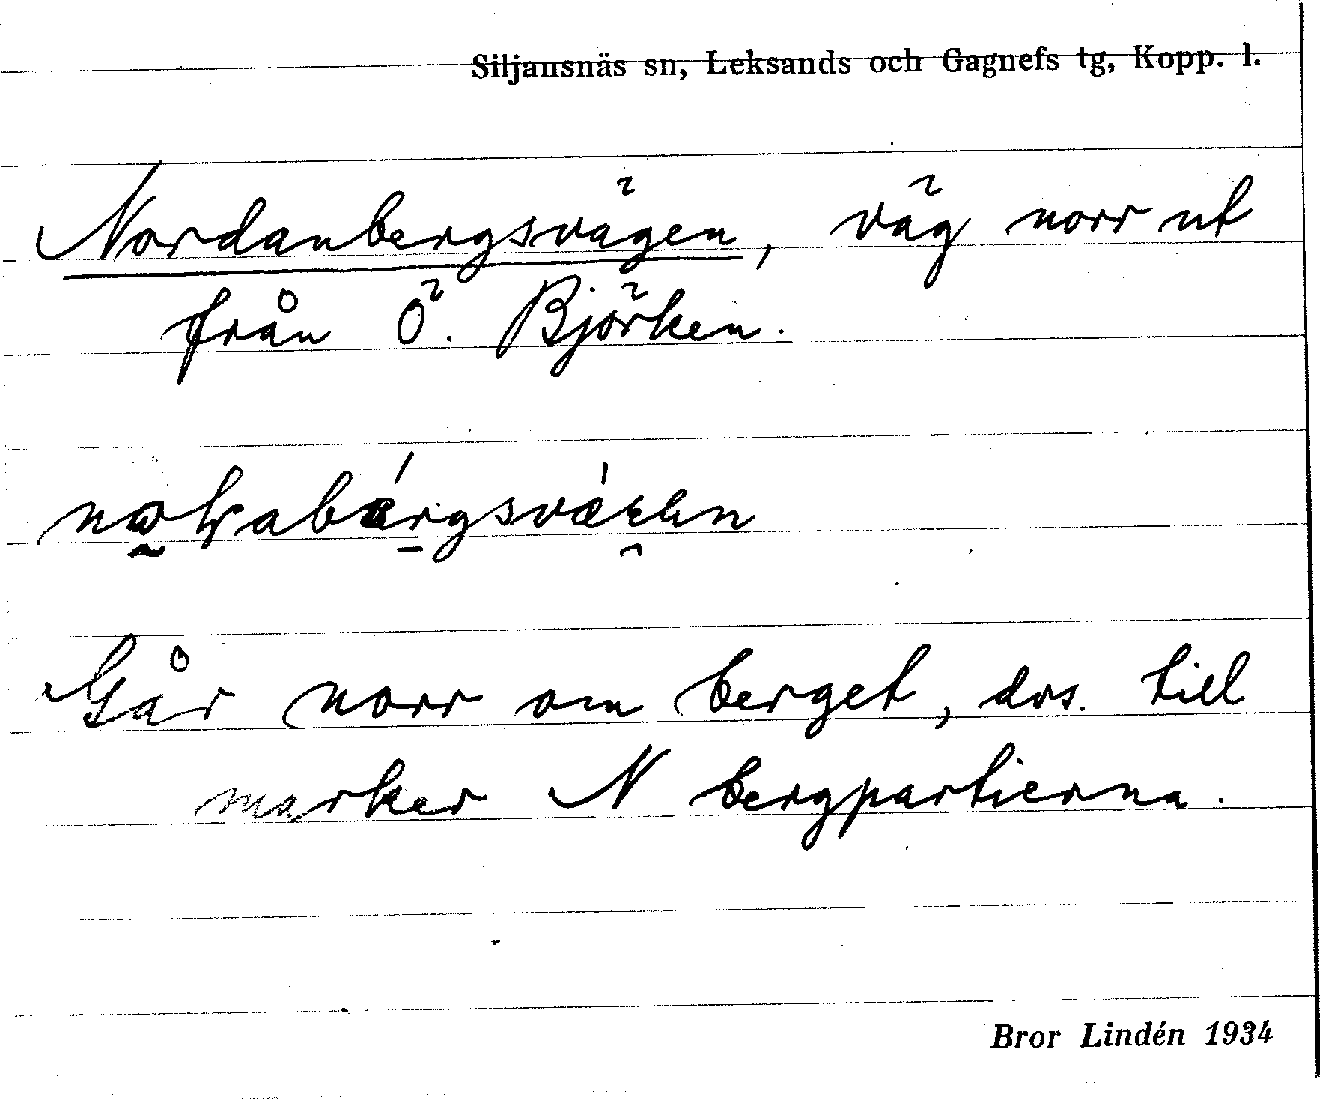 Siljansnäs sn, Leksands och Gagnefs tg, Kopp. l.
Nordanbergsvägen, väg norr ut
från Ö. Björken.
Går norr om berget, dvs. till
marker N bergpartierna.
Bror Lindén 1934